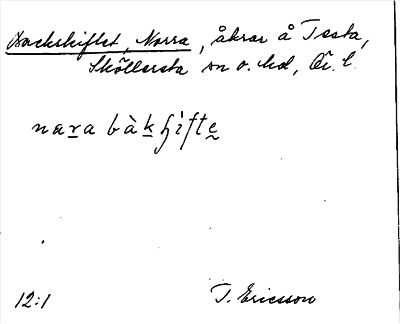 Backskiftet, Norra, åkrar å Testa,
Sköllersta sn o. hd, Ör. l.
nara bàkʃifte
12:1
T. Ericsson